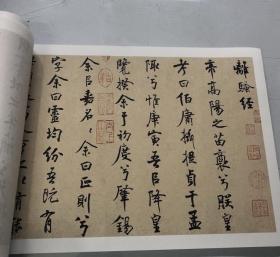 離騷經
帝高陽之苗裔兮朕皇
考曰伯庸攝提貞于孟
陬兮惟庚寅吾㠯降皇
覽揆余于初度兮肇錫
余㠯嘉名〻余曰正則兮
字余曰靈均紛吾既有